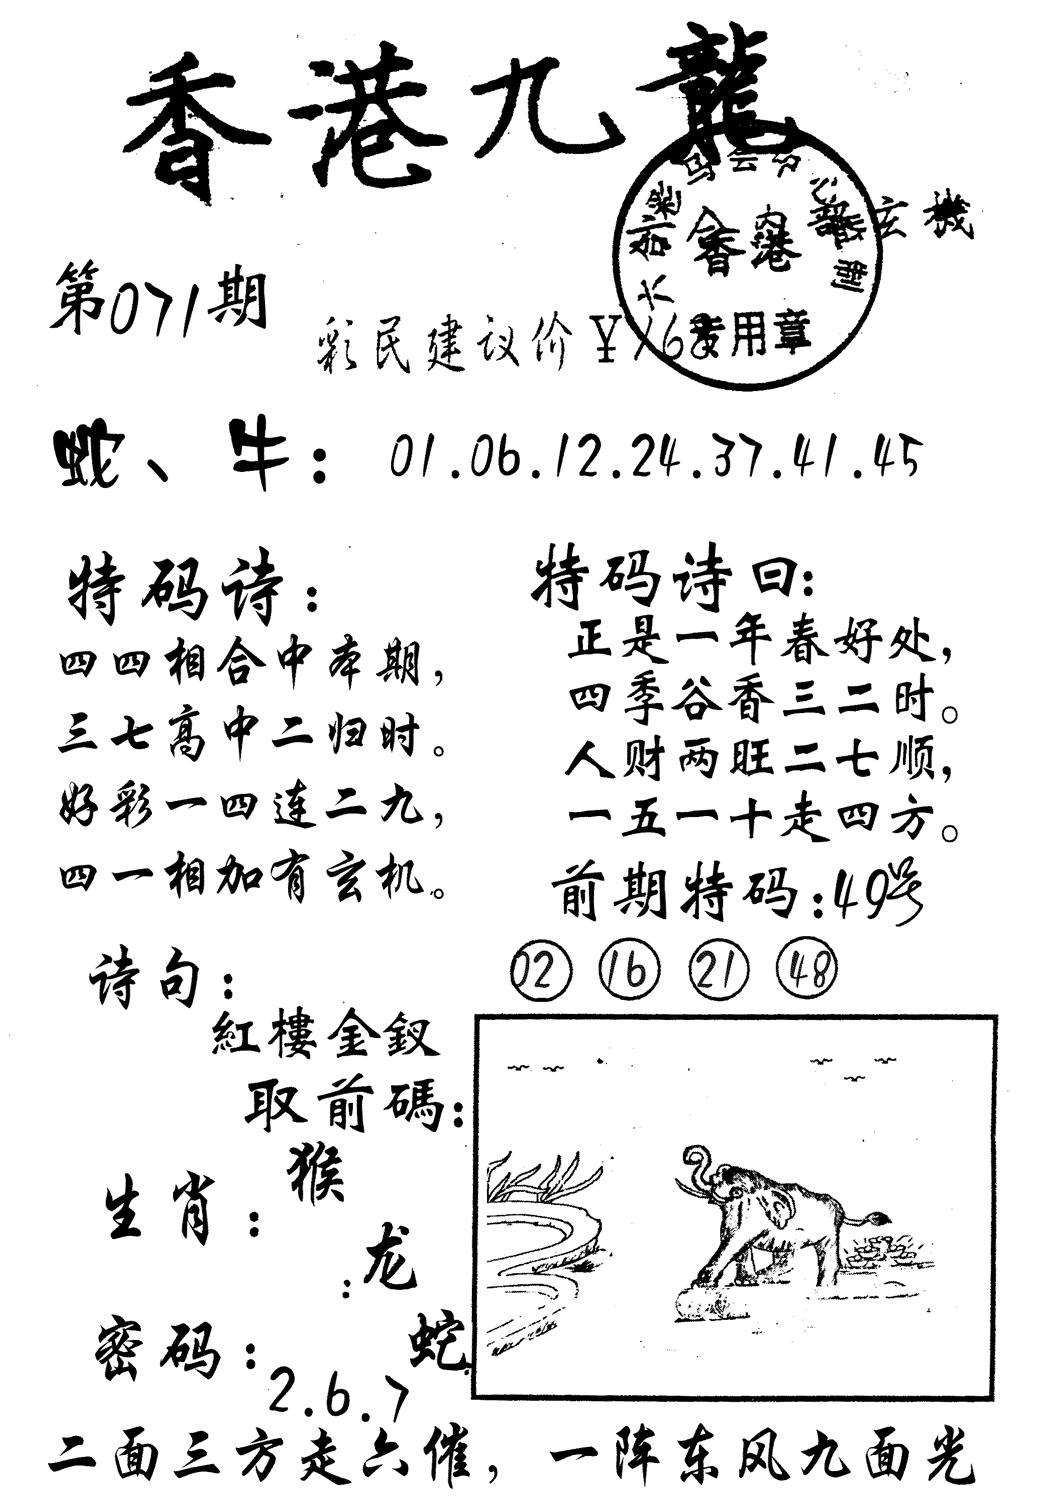 香港九龍
六和彩马会中心
香港
内部
玄機
专用章
第071期
彩民建议价￥168
蛇、牛：01.06.12.24.37.41.45
特码诗：
四四相合中本期，
三七高中二归时。
好彩一四连二九，
四一相加有玄机。
特码诗曰：
正是一年春好处，
四季谷香三二时。
人财两旺二七顺，
一五一十走四方。
前期特码：49号
02 16 21 48
诗句：
紅樓金釵
取前碼：
生肖：猴
：龙
蛇
密码：2.6.7
二面三方走六催，一阵东风九面光